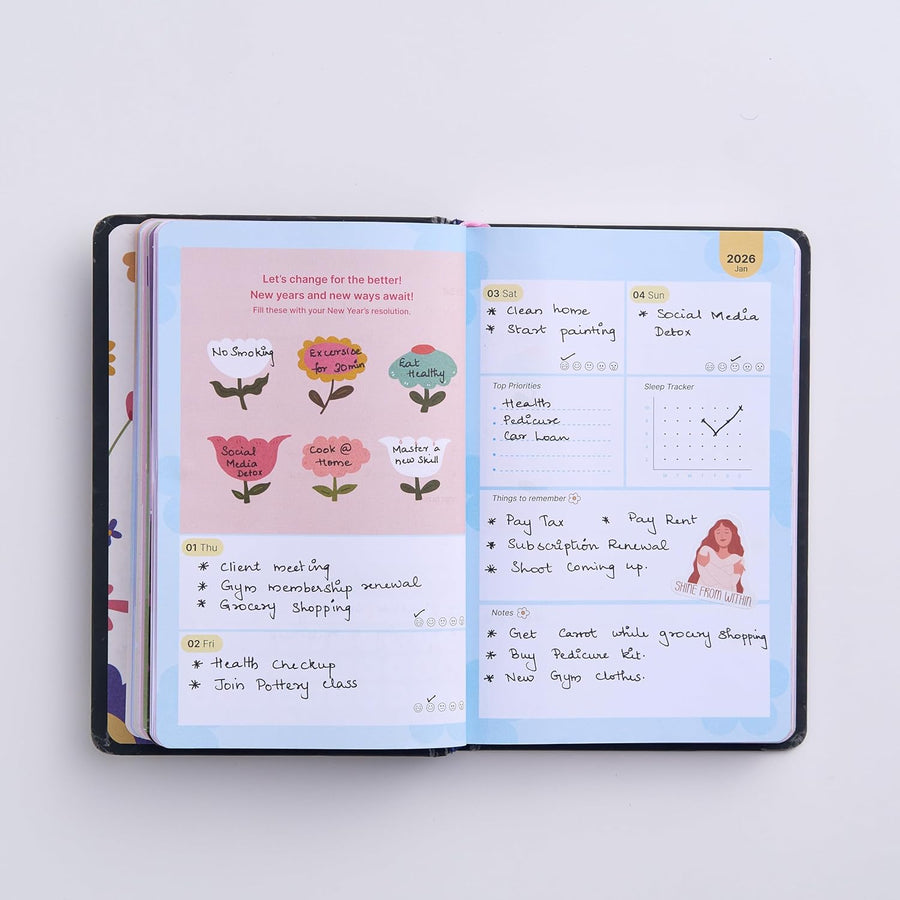 Let's change for the better!
New years and new ways await!
Fill these with your New Year's resolution.
No Smoking
Excersise
for 30min
Eat
Healthy
Social
Media
Detox
Cook @
Home
Master a
new Skill
01 Thu
* Client meeting
* Gym membership renewal
* Grocery Shopping
02 Fri
* Health Checkup
* Join Pottery class
2026
Jan
03 Sat
* Clean home
* Start painting
04 Sun
* Social Media
Detox
Top Priorities
Health
Pedicure
Car Loan
Sleep Tracker
Things to remember
* Pay Tax * Pay Rent
* Subscription Renewal
* Shoot Coming up.
SHINE FROM WITHIN
Notes
* Get Carrot while grocery shopping
* Buy Pedicure kit.
* New Gym Clothes.